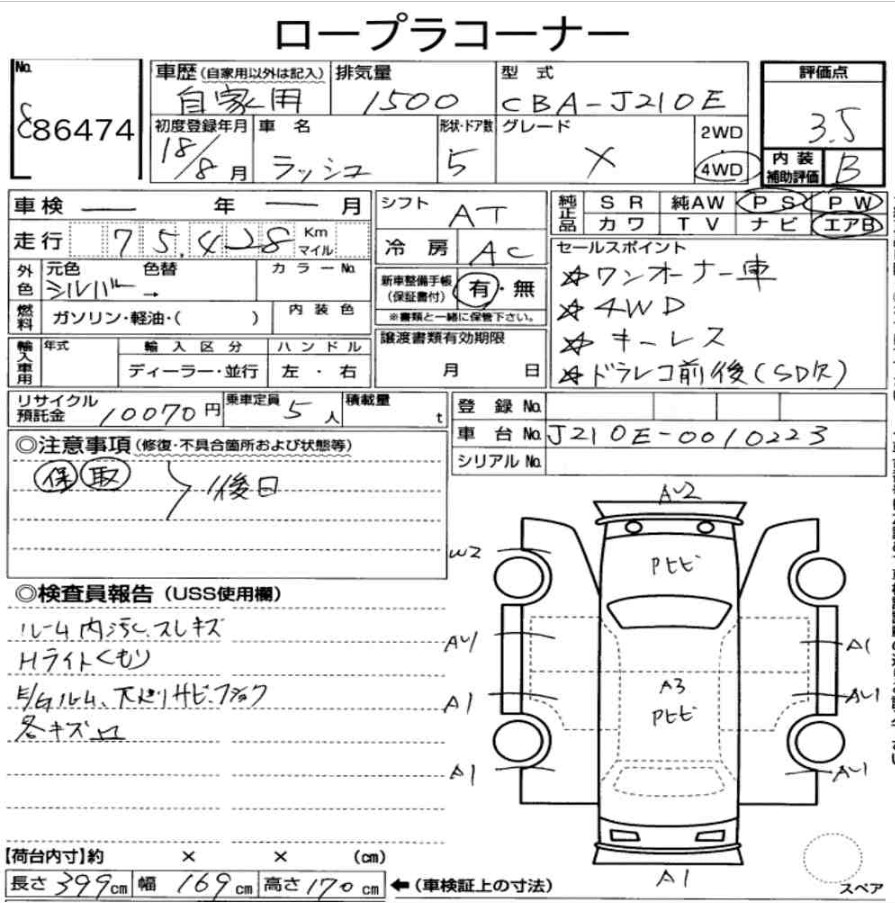 ロープラコーナー
No.
86474
車歴(自家用以外は記入) 排気量 型式
自家用 1500 CBA-J210E
初度登録年月 車名 形状・ドア数 グレード 2WD
18/8月 ラッシュ 5 X 4WD
評価点
3.5
内装補助評価 B
車検 ― 年 ― 月
走行 75,428 Km マイル
外色 元色 色替 カラーNo.
シルバー →
燃料 ガソリン・軽油・( ) 内装色
輸入車用 年式 輸入区分 ハンドル
ディーラー・並行 左・右
シフト AT
冷房 AC
新車整備手帳(保証書付) 有・無
※書類と一緒に保管下さい。
譲渡書類有効期限
月 日
純正品 SR 純AW PS PW
カワ TV ナビ エアB
セールスポイント
☆ワンオーナー車
☆4WD
☆キーレス
☆ドラレコ前後(SD欠)
リサイクル預託金 10070円 乗車定員 5人 積載量 t
登録No.
車台No. J210E-0010223
シリアルNo.
◎注意事項(修復・不具合箇所および状態等)
保 取 後日
◎検査員報告(USS使用欄)
ルーム内汚れ、スレキズ
Hライトくもり
E/Gルーム、下廻りサビ、フショク
各キズ凹
【荷台内寸】約 × × (cm)
長さ 399cm 幅 169cm 高さ 170cm ←(車検証上の寸法)
AU2
W2
Pヒビ
AU1
A1
A3
Pヒビ
A1
AU1
A1
AU1
A1
スペア